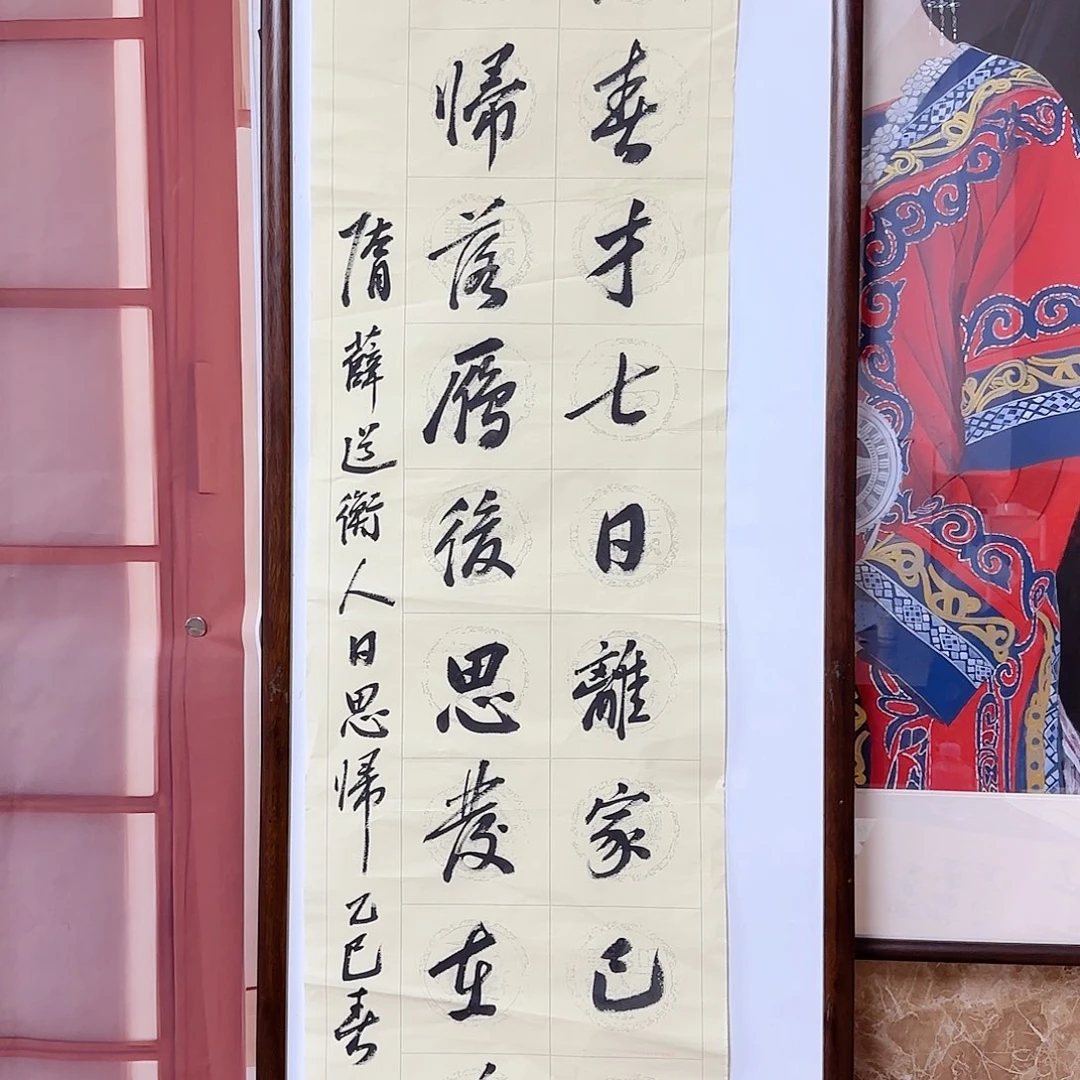 春才七日離家已
歸落鴈後思發在
隋薛道衡人日思歸乙巳春